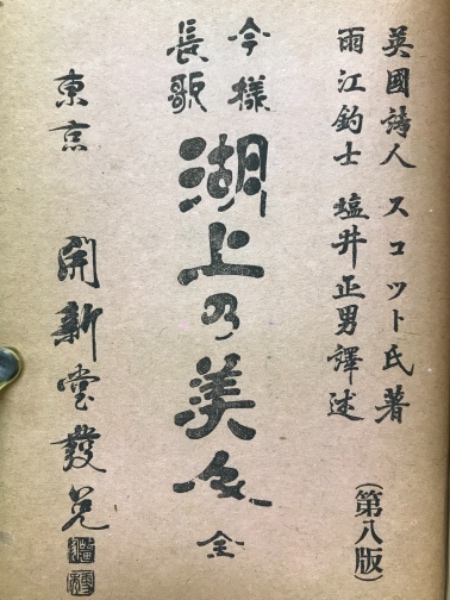 英國詩人 スコット氏著
雨江釣士 塩井正男譯述
(第八版)
今様
長歌
湖上乃美人 全
東京 開新堂發兌